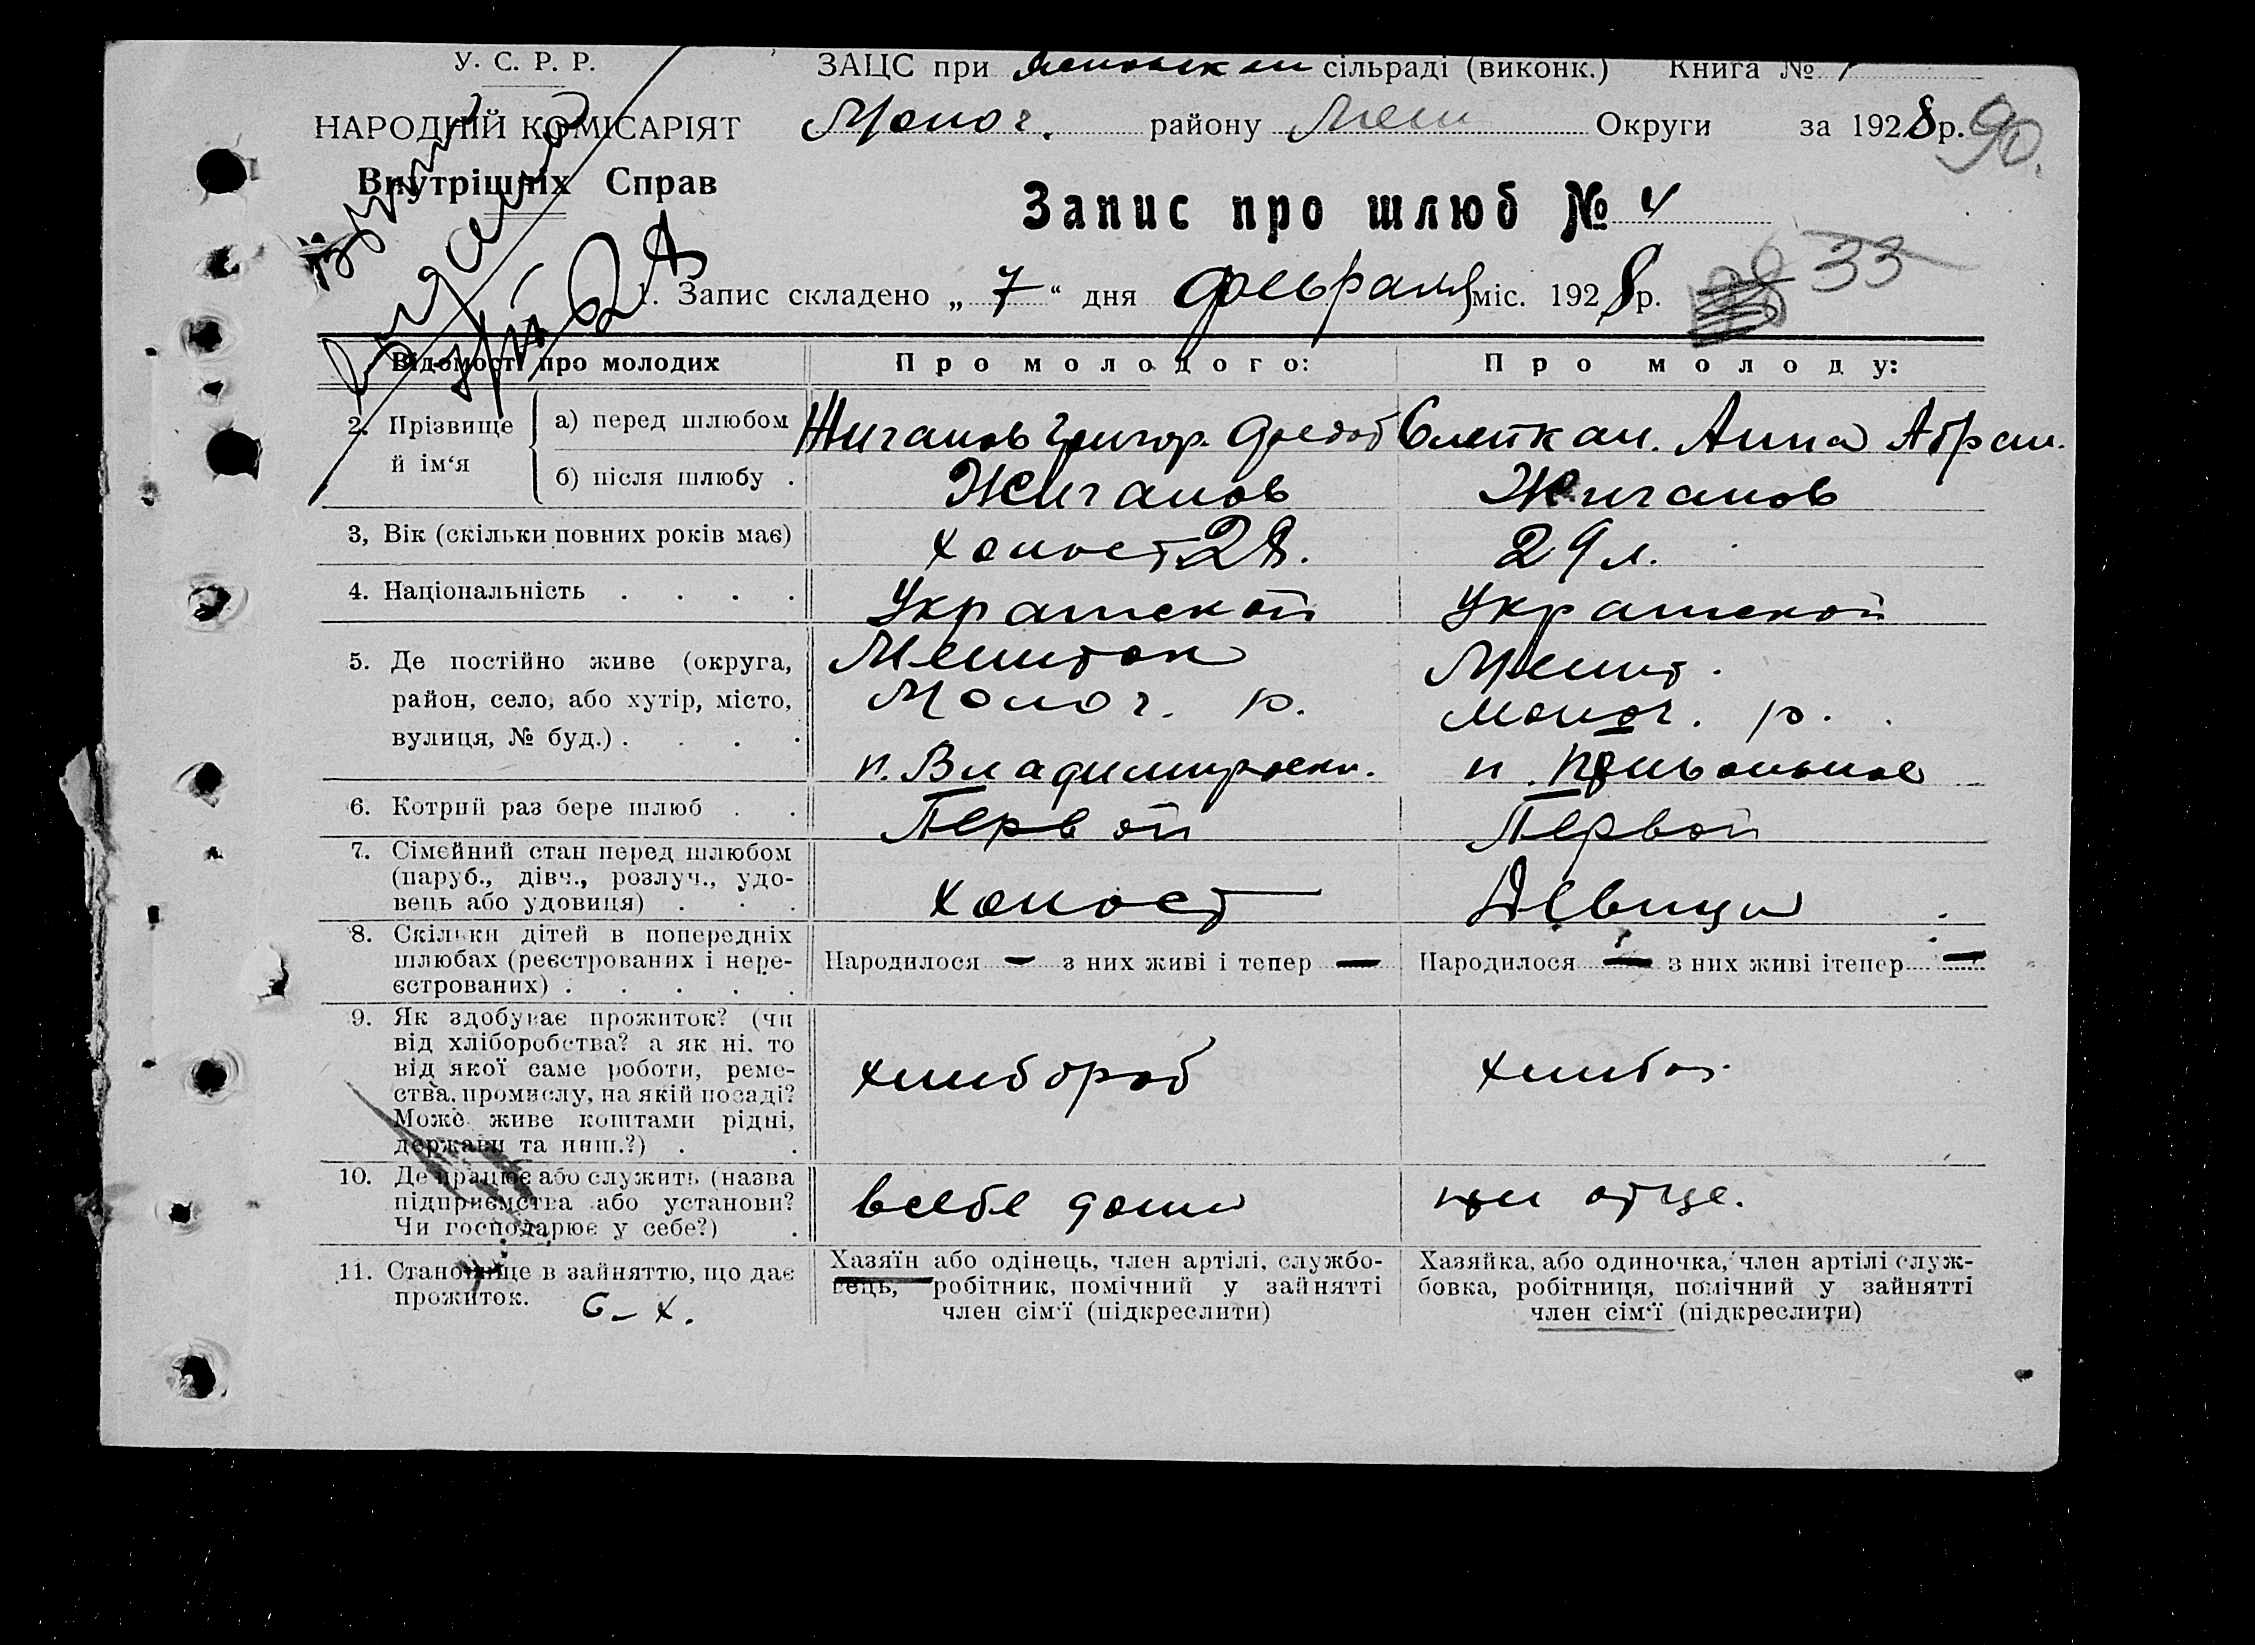 У. С. Р. Р.
ЗАЦС при сільраді (виконк.) Книга №
НАРОДНІЙ КОМІСАРІЯТ
Молоч. району Мел Округи за 1928 р. 90.
Внутрішніх Справ
Запис про шлюб № 4
33
1. Запис складено „ 7 “ дня февраля міс. 1928 р.
Відомості про молодих
Про молодого:
Про молоду:
2. Прізвище й ім‘я
а) перед шлюбом
Жиганов Григор. Федот
Анна Абрам.
б) після шлюбу .
Жиганов
Жиганов
3, Вік (скільки повних років має)
холост 28.
29 л.
4. Національність . . . .
Украинской
Украинской
5. Де постійно живе (округа,
район, село, або хутір, місто,
вулиця, № буд.) . . . .
Мелитоп
Молоч. р.
п. Владимировк.
Мелит.
Молоч. р.
п. Привольное
6. Котрий раз бере шлюб . .
Первой
Первой
7. Сімейний стан перед шлюбом
(паруб., дівч., розлуч., удо-
вець або удовиця) . . .
холост
Девица
8. Скільки дітей в попередніх
шлюбах (реєстрованих і нере-
єстрованих) . . . . .
Народилося — з них живі і тепер —
Народилося — з них живі ітепер —
9. Як здобуває прожиток? (чи
від хліборобства? а як ні, то
від якої саме роботи, реме-
ства, промислу, на якій посаді?
Може живе коштами рідні,
держави та инш.?) . .
хлибороб
хлибоз.
10. Де працює або служить (назва
підприємства або установи?
Чи господарює у себе?) .
всебе дома
при отце.
11. Становище в зайняттю, що дає
прожиток. С-х.
Хазяїн або одінець, член артілі, службо-
вець, робітник, помічний у зайнятті
член сім‘ї (підкреслити)
Хазяйка, або одиночка, член артілі служ-
бовка, робітниця, помічний у зайнятті
член сім‘ї (підкреслити)